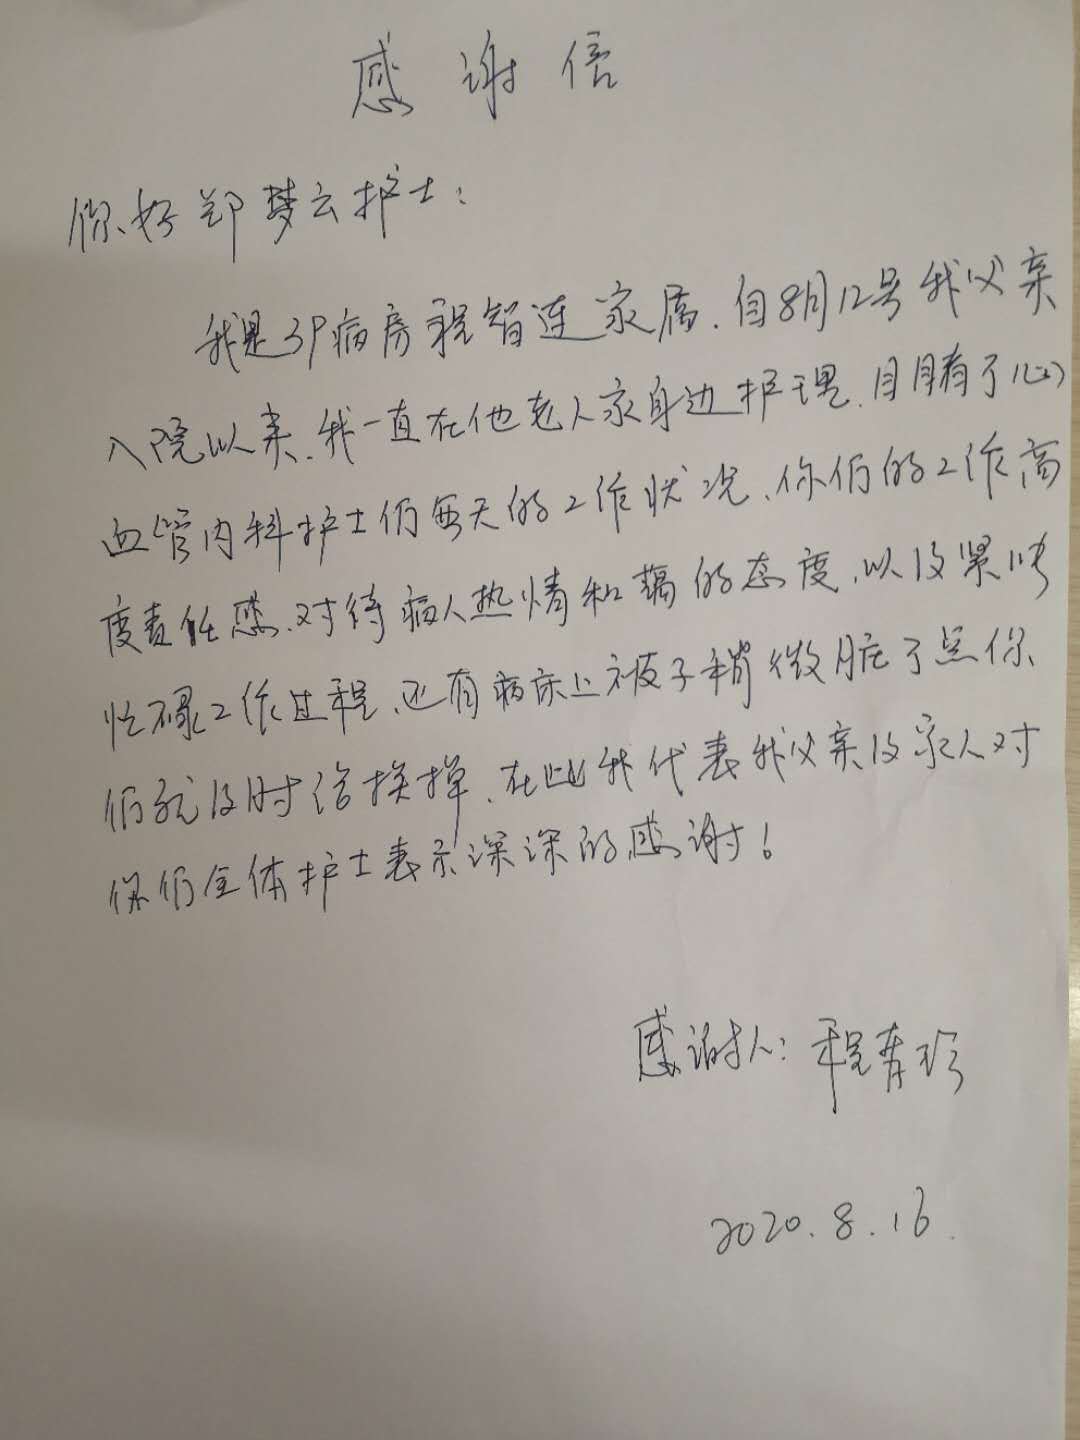 感谢信
你好郑梦云护士：
我是39病房程智连家属.自8月12号我父亲
入院以来.我一直在他老人家身边护理.目睹了心
血管内科护士们每天的工作状况、你们的工作高
度责任感.对待病人热情和蔼的态度.以及紧张
忙碌工作过程.还有病床上被子稍微脏了点你
们就及时给换掉.在此我代表我父亲及家人对
你们全体护士表示深深的感谢！
感谢人：程青珍
2020.8.16.